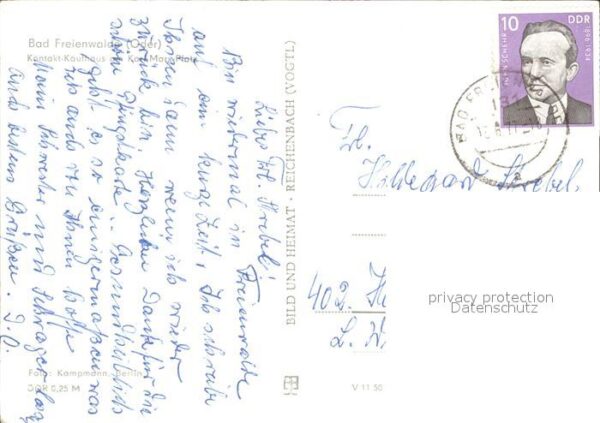 Bad Freienwalde (Oder)
Kontakt-Kaufhaus am Karl-Marx-Platz
Liebes Frl. Strebel!
Bin wiedermal in Freienwalde
auf ein kurze Zeit, Ich schreibe
Ihnen dann wenn ich wieder
zurück bin. Herzlichen Dank für die
schöne Pfingstkarte. Gesundheitlich
geht es so einigermaßen was
ich auch von Ihnen hoffe
Mein Schwester und Schwager
und besten Grüßen.
Foto: Kampmann, Berlin
DDR 0,25 M
BILD UND HEIMAT · REICHENBACH (VOGTL)
V 11 50
10 DDR
1896-1934
Frl.
Hildegard Strebel.
402.
privacy protection
Datenschutz